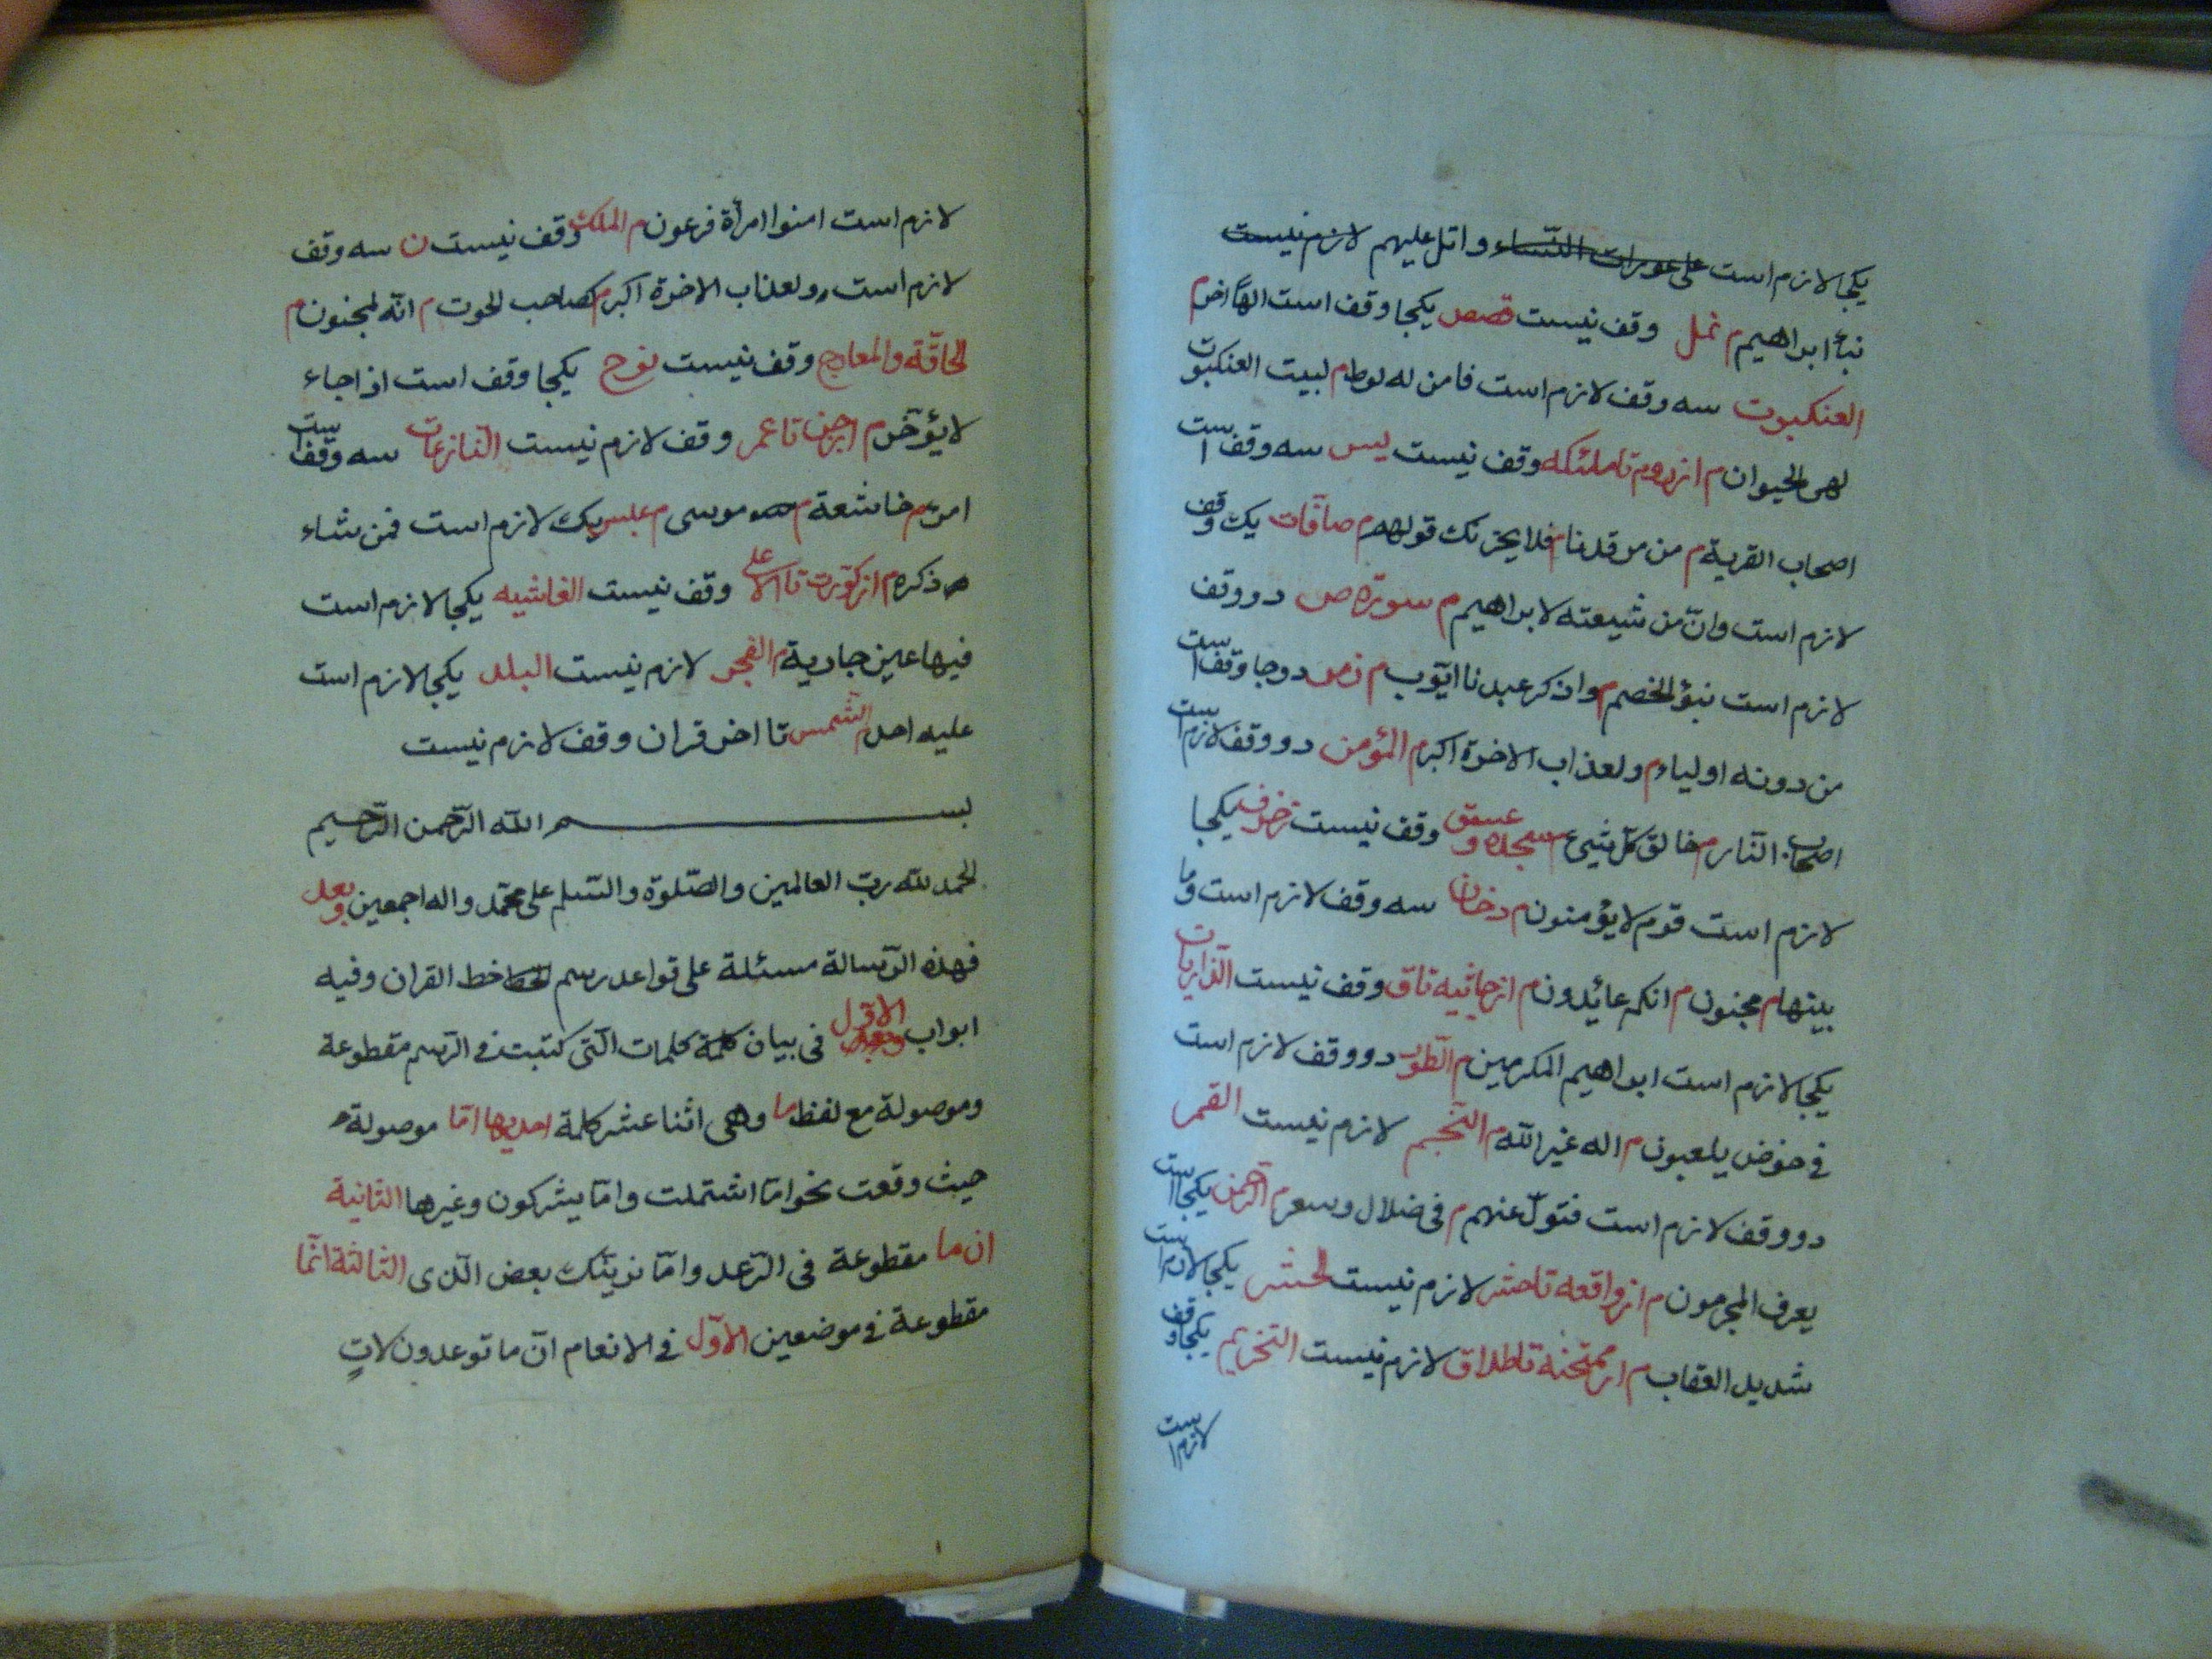 یکجا لازم است علی عورات النساء واتل علیهم لازم نیست
نباء ابراهیم م نمل وقف نیست قصص یکجا وقف است الهاً اخر م
العنکبوت سه وقف لازم است فامن له لوط م لبیت العنکبوت
لهی الحیوان م از روم تا ملئکه وقف نیست یس سه وقف است
اصحاب القریة م من مرقدنا م فلا یحزنک قولهم م صافات یک وقف
لازم است وانّ من شیعته لابراهیم م سورة ص دو وقف
لازم است نبؤ الخصم م واذکر عبدنا ایّوب م زمر دو جا وقف است
من دونه اولیاء م ولعذاب الاخرة اکبر م المؤمن دو وقف لازم است
اصحاب النار م خالق کلّ شیء م سجده و عسق وقف نیست زخرف یکجا
لازم است قوم لا یؤمنون م دخان سه وقف لازم است وما
بینهما م مجنون م انکم عائدون م از جاثیه تا ق وقف نیست الذاریات
یکجا لازم است ابراهیم المکرمین م الطور دو وقف لازم است
فی خوض یلعبون م اله غیر الله م النّجم لازم نیست القمر
دو وقف لازم است فتولّ عنهم م فی ضلال وسعر م الرّحمن یکجا است
یعرف المجرمون م از واقعه تا حشر لازم نیست الحشر یکجا لازم است
شدید العقاب م از ممتحنه تا طلاق لازم نیست التحریم یکجا وقف
لازم است
لازم است امنوا امرأة فرعون م الملک وقف نیست ن سه وقف
لازم است ولعذاب الاخرة اکبر م کصاحب الحوت م انّه لمجنون م
الحاقّة والمعارج وقف نیست نوح یکجا وقف است اذا جاء
لا یؤخّر م از جن تا عمّ وقف لازم نیست النّازعات سه وقف است
امر م خاشعة م موسی م عبس یک لازم است فمن شاء
ذکره م از کوّرت تا الاعلی وقف نیست الغاشیه یکجا لازم است
فیها عین جاریة م الفجر لازم نیست البلد یکجا لازم است
علیه احد م الشّمس تا اخر قران وقف لازم نیست
بسم الله الرّحمن الرّحیم
الحمد لله ربّ العالمین والصّلوة والسّلم علی محمّد واله اجمعین وبعد
فهذه الرّسالة مسئلة علی قواعد رسم خط القران وفیه
ابواب الاوّل فی بیان کلمة کلمات الّتی کتبت فی الرّسم مقطوعة
وموصولة مع لفظ ما وهی اثنا عشر کلمة احدیها امّا موصولة
حیث وقعت نحو امّا اشتملت وامّا یشرکون وغیرها الثانیة
ان ما مقطوعة فی الرّعد وامّا نرینّک بعض الّذی الثالثة انّما
مقطوعة فی موضعین الاوّل فی الانعام انّ ما توعدون لاتٍ